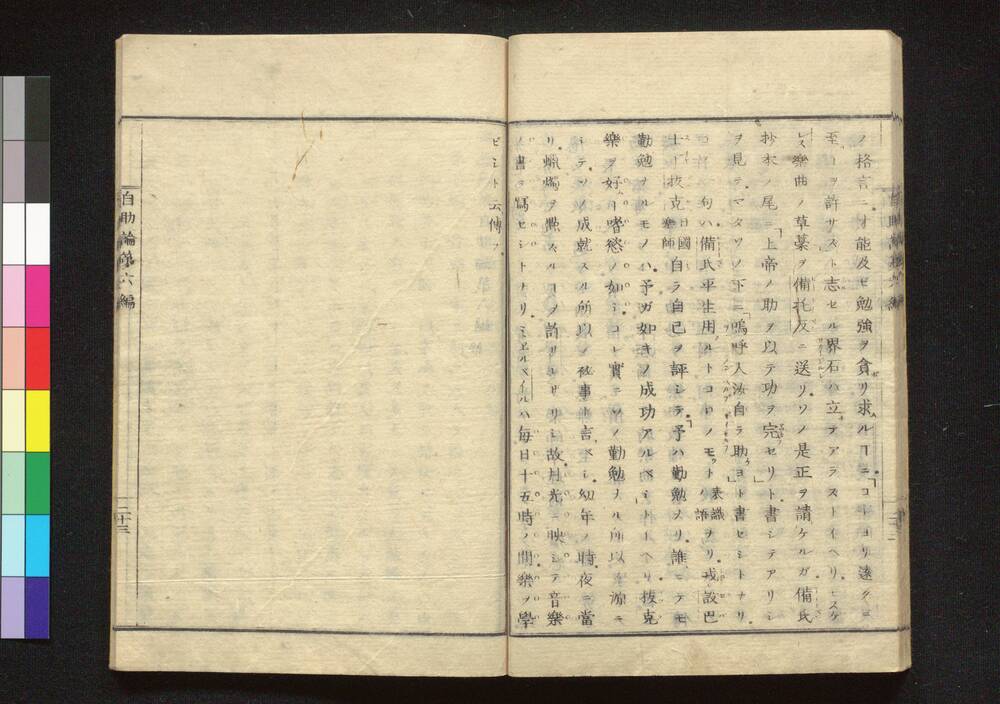 ノ格言ニ才能及ビ勉強ヲ貪リ求ムルヿニ「コレヨリ遠クヱ
至ヿヲ許サズト志セル界石ハ立テアラズトイヘリ
レス樂曲ノ草藁ヲ備托反ニ送リソノ是正ヲ請ケルガ備氏
抄本ノ尾ニ「上帝ノ助ヲ以テ功ヲ完セリト書シテアリシ
ヲ見テマタソノ下ニ「嗚呼人汝自ラ助ヨト書セシトナリ
句ハ備氏平生用ルトコロノモットー 表識語 ナリ 戎設巴
士丁抜克 日國樂師 自ラ自己ヲ評シテ「予ハ勤勉ナリ誰ニテモ
勤勉ナルモノハ予ガ如キノ成功アルベシトイヘリ抜克
樂ヲ好ム嗜慾ノ如シコレ實ニソノ勤勉ナル所以ノ源ニ
シテソノ成就スル所以ノ祕事ト言ベシ幼年ノ時夜ニ當
リ蠟燭ヲ點スルヿヲ許サレザリシ故月光ニ映シテ音樂
ノ書ヲ寫セシトナリミエルベイルハ毎日十五時ノ間樂ヲ學
ビシト云傳フ
自助論第六編
二十三